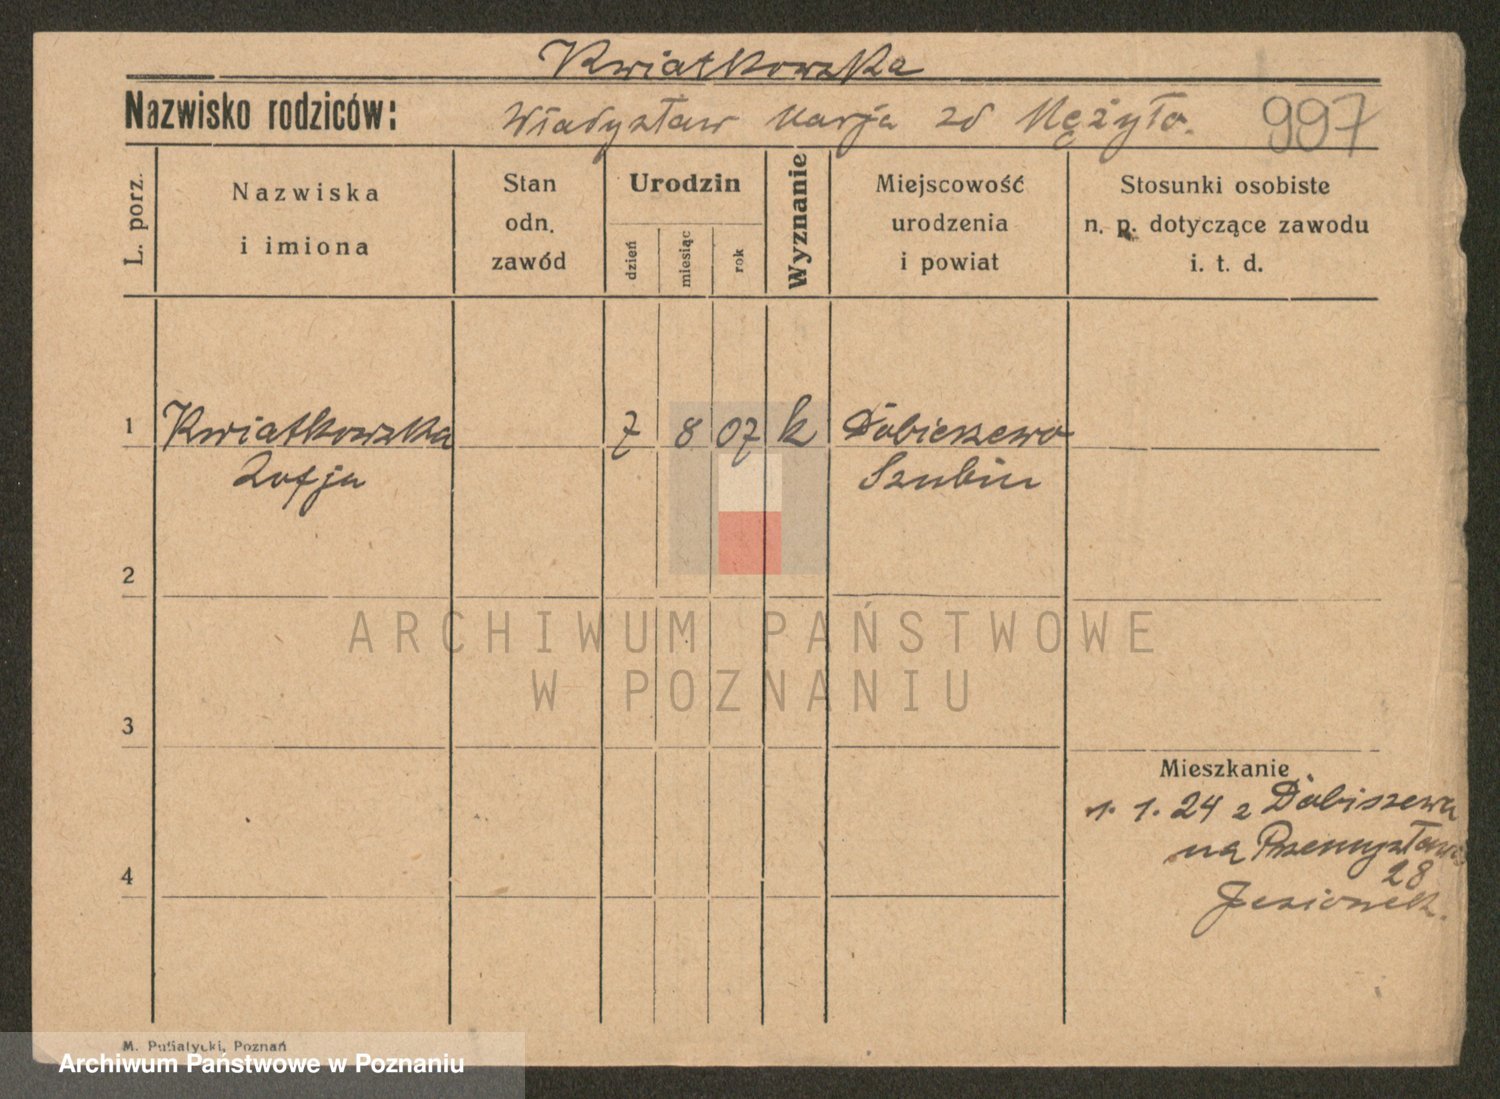 Kwiatkowska
Nazwisko rodziców: Władysław Marja zd Mężyło. 997
L. porz.
Nazwiska
i imiona
Stan
odn.
zawód
Urodzin
dzień
miesiąc
rok
Wyznanie
Miejscowość
urodzenia
i powiat
Stosunki osobiste
n. p. dotyczące zawodu
i. t. d.
1 Kwiatkowska 7 8 07 k Dobieszewo
Zofja Szubin
2
ARCHIWUM PAŃSTWOWE
W POZNANIU
3
Mieszkanie
1. 1. 24 z Dobiszewa
na Przemysława
28
4
Jesionek.
M. Putiatycki, Poznań
Archiwum Państwowe w Poznaniu